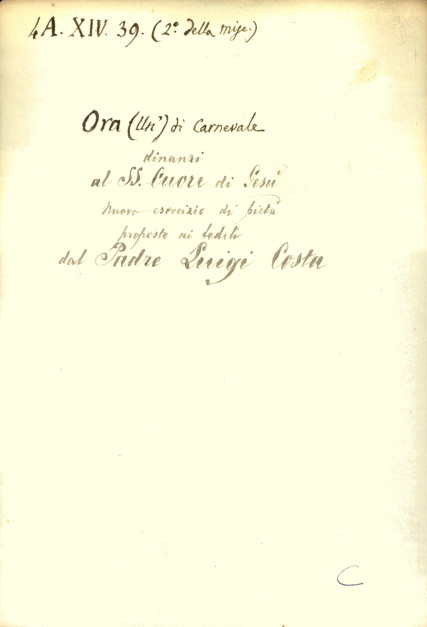 4A. XIV. 39. (2º della misc.)
Ora (Un') di Carnevale
dinanzi
al SS. Cuore di Gesù
Nuovo esercizio di pietà
proposto ai fedeli
dal Padre Luigi Costa
C